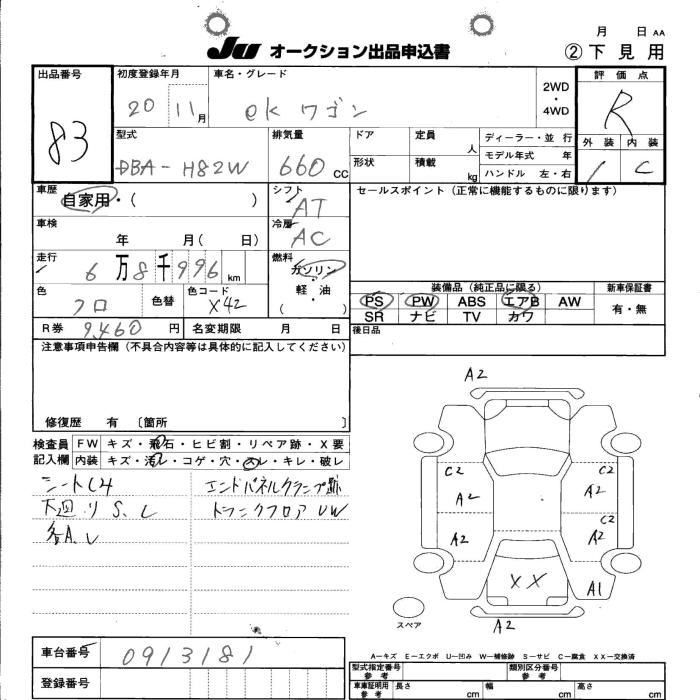 JU オークション出品申込書
月 日 AA
② 下見用
出品番号 83
初度登録年月 20 11月
車名・グレード ekワゴン
2WD・4WD
評価点 R
外装 内装 C
型式 DBA-H82W
排気量 660 CC
ドア 定員 人
形状 積載 kg
ディーラー・並行
モデル年式 年
ハンドル 左・右
車歴 自家用・( )
シフト AT
セールスポイント(正常に機能するものに限ります)
車検 年 月( 日)
冷房 AC
走行 6万8千996km
燃料 ガソリン・軽・油・( )
色 クロ 色替 色コード X42
装備品(純正品に限る) 新車保証書
PS PW ABS エアB AW 有・無
SR ナビ TV カワ
R券 9,460円 名変期限 月 日
後日品
注意事項申告欄(不具合内容等は具体的に記入してください)
修復歴 有 〔箇所 〕
検査員 FW キズ・飛石・ヒビ割・リペア跡・X要
記入欄 内装 キズ・汚レ・コゲ・穴・スレ・キレ・破レ
エンドパネルクランプ跡
下廻り S、L
トランクフロア UW
各A、U
A2
C2 C2
A2 A2
C2
A2 A2
XX A1
スペア
A2
A－キズ E－エクボ U－凹み W－補修跡 S－サビ C－腐食 XX－交換済
車台番号 0913181
登録番号
型式指定番号 参考 類別区分番号 参考
車庫証明用 参考 長さ cm 幅 cm 高さ cm